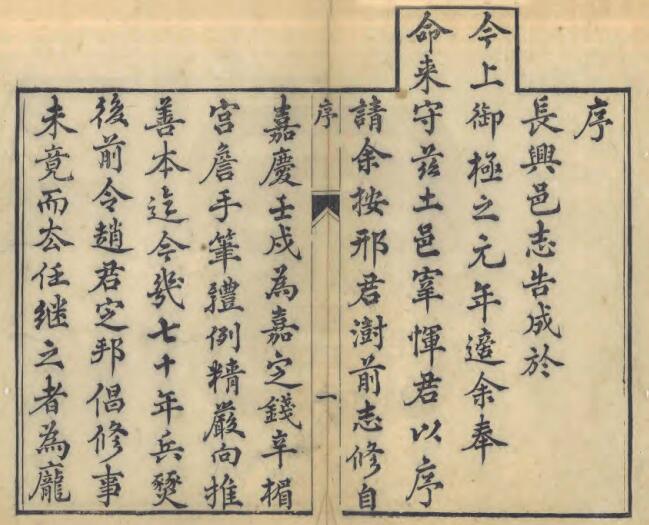 序
長興邑志告成於
今上御極之元年適余奉
命来守茲土邑宰惲君以序
請余按邢君澍前志修自
序
一
嘉慶壬戌為嘉定錢辛楣
宮詹手筆體例精嚴向推
善本迄今幾七十年兵燹
後前令趙君定邦倡修事
未竟而厺任継之者為龐